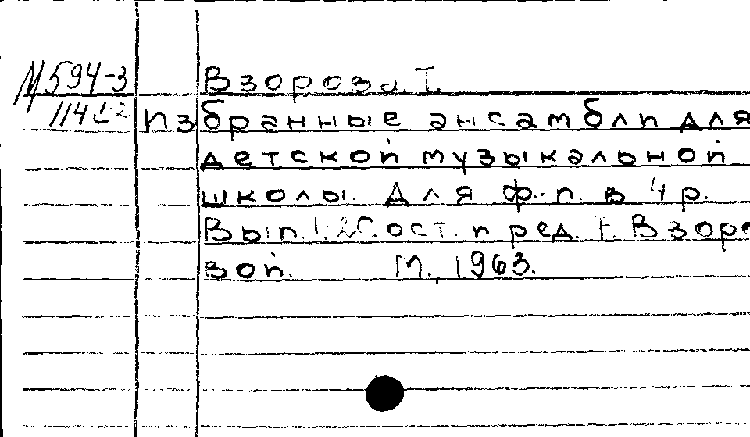 М594-3 Взорова Т.
114 Избранные ансамбли для
детской музыкальной
школы. Для ф.-п. в 4 р.
Вып. 1,2 Сост. и ред. Т. Взоро-
вой. М., 1963.